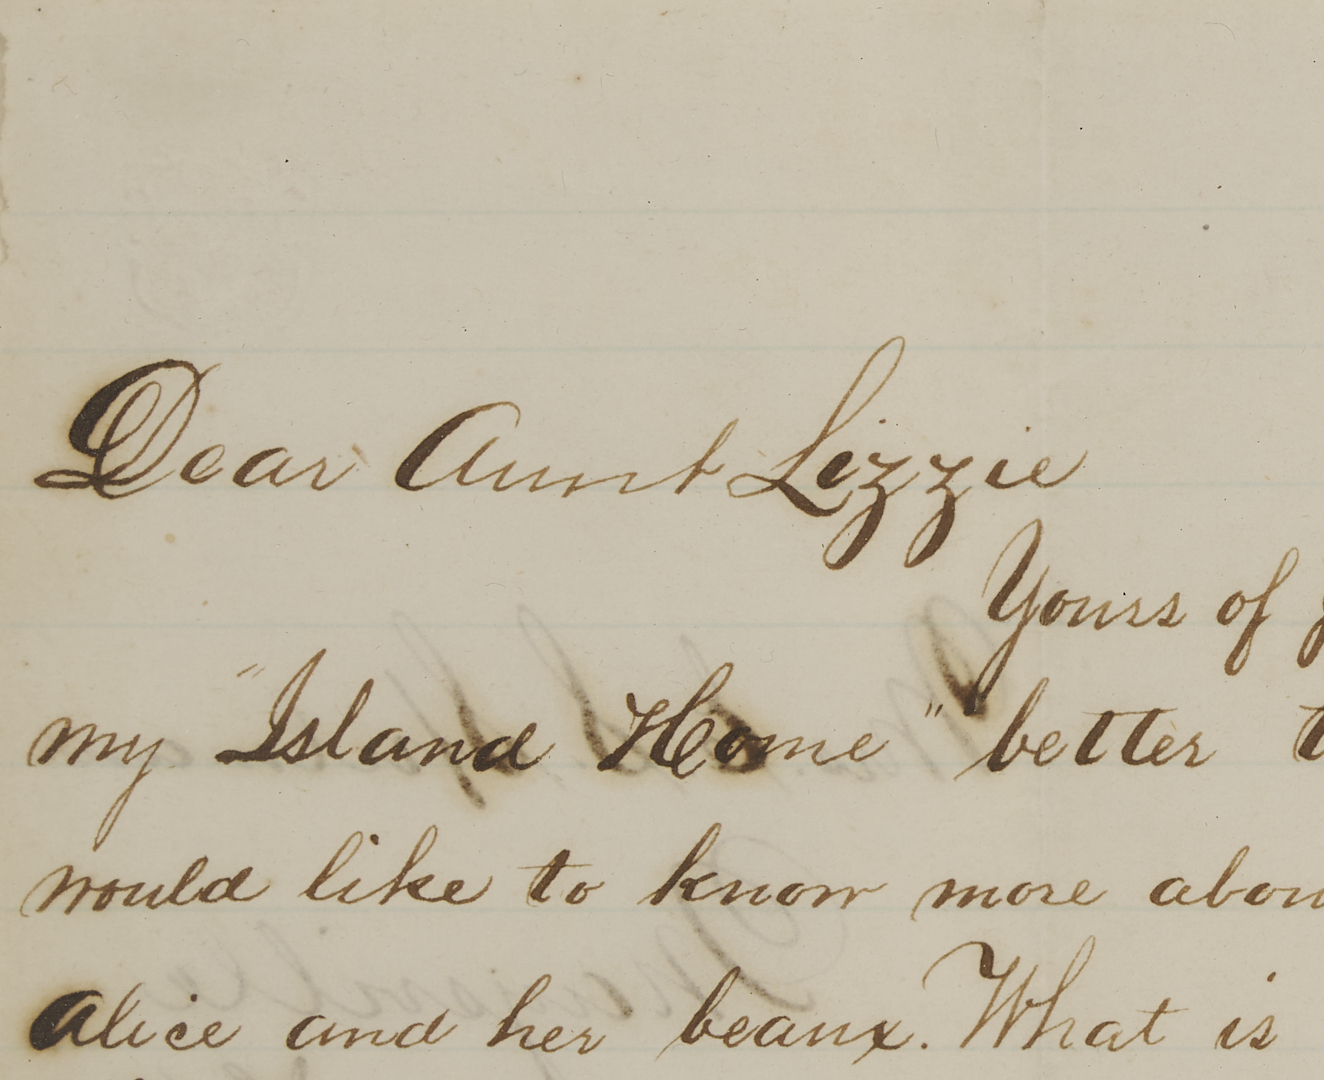 Dear Aunt Lizzie
Yours of
my "Island Home" better
would like to know more
Alice and her beaux. What is